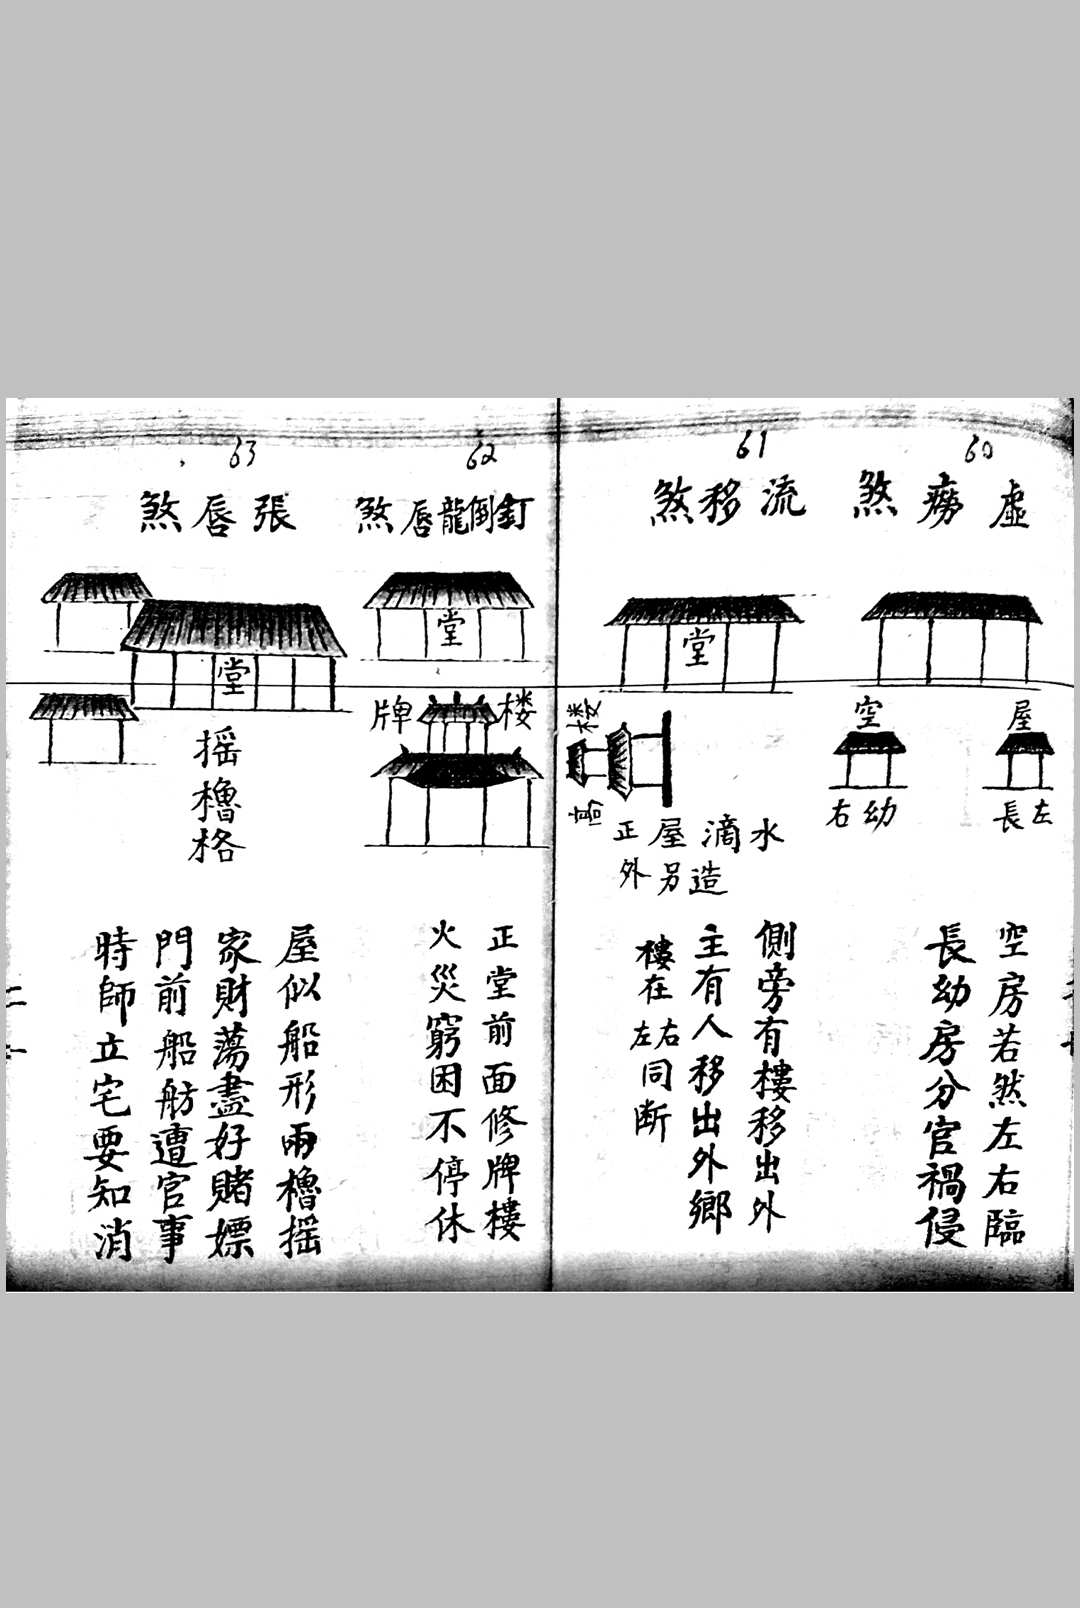 60
虛癆煞
空
屋
右幼
長左
空房若然左右臨
長幼房分官禍侵
61
流移煞
堂
楼
高
水滴屋正
外另造
側旁有樓移出外
主有人移出外鄉
樓在左右同断
62
釘倒龍唇煞
堂
牌楼
正堂前面修牌樓
火災窮困不停休
63
張唇煞
堂
摇櫓格
屋似船形兩櫓摇
家財蕩盡好賭嫖
門前船舫遭官事
時師立宅要知消